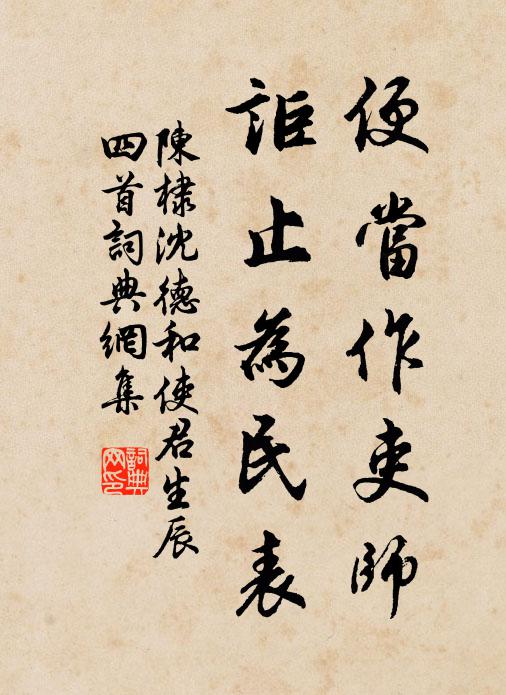 便當作吏師
詎止為民表
陳棣沈德和使君生辰
四首詞典網集
詞典网印